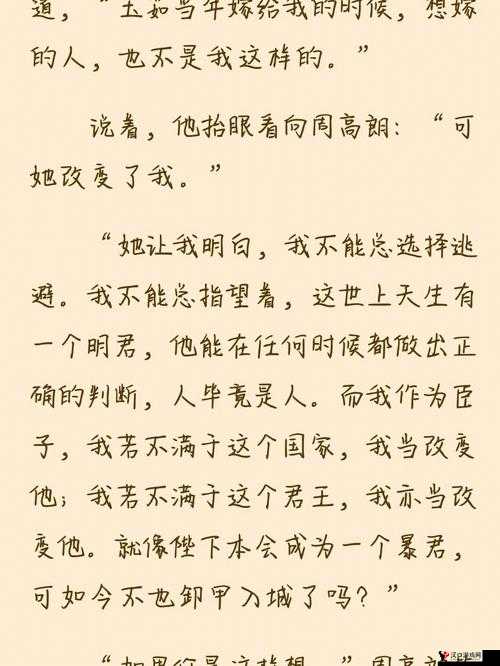 道，“玉茹当年嫁给我的时候，想嫁
的人，也不是我这样的。”
说着，他抬眼看向周高朗：“可
她改变了我。”
“她让我明白，我不能总选择逃
避。我不能总指望着，这世上天生有
一个明君，他能在任何时候都做出正
确的判断，人毕竟是人。而我作为臣
子，我若不满于这个国家，我当改变
他；我若不满于这个君王，我亦当改
变他。就像陛下本会成为一个暴君，
可如今不也卸甲入城了吗？”
“如果你是这样想，”周高朗
汉口游戏网